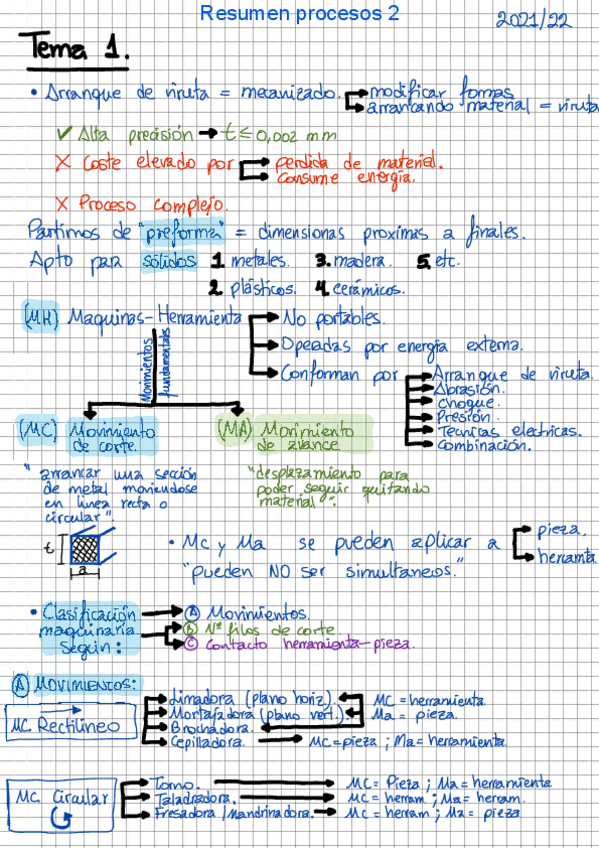 Resumen procesos 2
2021/22
Tema 1.
• Arranque de viruta = mecanizado. modificar formas
arrancando material = viruta
✓ Alta precisión → t ≤ 0,002 mm
X Coste elevado por perdida de material.
Consume energía.
X Proceso complejo.
Partimos de "preforma" = dimensiones proximas a finales.
Apto para sólidos 1. metales. 3. madera. 5. etc.
2. plásticos. 4. cerámicos.
(MH) Maquinas-Herramienta No portables.
Movimientos fundamentales
Operadas por energía externa.
Conforman por Arranque de viruta.
Abrasión.
Choque.
Presión.
Tecnicas electricas.
Combinación.
(MC) Movimiento de corte.
(MA) Movimiento de avance
"arrancar una sección
de metal moviendose
en linea recta o
circular".
"desplazamiento para
poder seguir quitando
material".
t
a
• Mc y Ma se pueden aplicar a pieza.
herramta
"pueden NO ser simultaneos."
• Clasificación
maquinaria
según:
A Movimientos.
b Nº filos de corte
C Contacto herramienta-pieza.
A MOVIMIENTOS:
MC Rectilíneo
Limadora (plano horiz). MC = herramienta.
Mortajadora (plano vert). Ma = pieza.
Brochadora.
Cepilladora. → MC=pieza ; Ma=herramienta.
MC Circular
Torno. → MC= Pieza ; Ma= herramienta
Taladradora. → MC= herram ; Ma= herram.
Fresadora /Mandrinadora. → MC= herram ; Ma= pieza